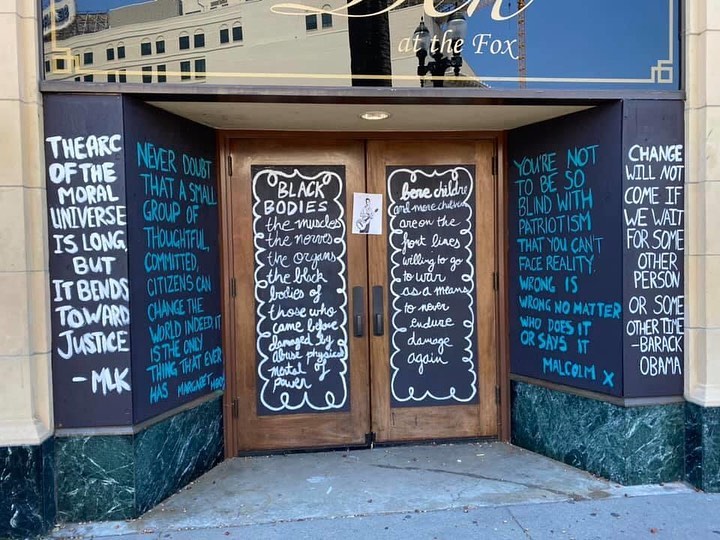 Den
at the Fox
THE ARC
OF THE
MORAL
UNIVERSE
IS LONG,
BUT
IT BENDS
TOWARD
JUSTICE
- MLK
NEVER DOUBT
THAT A SMALL
GROUP OF
THOUGHTFUL,
COMMITTED,
CITIZENS CAN
CHANGE THE
WORLD INDEED IT
IS THE ONLY
THING THAT EVER
HAS MARGARET
BLACK
BODIES
the muscles
the nerves
the organs
the black
bodies of
those who
came before
damaged by
abuse physical
mental of
power
bore children
and more children
are on the
front lines
willing to go
to war
as a means
to never
endure
damage
again
YOU'RE NOT
TO BE SO
BLIND WITH
PATRIOTISM
THAT YOU CAN'T
FACE REALITY.
WRONG IS
WRONG NO MATTER
WHO DOES IT
OR SAYS IT
MALCOLM X
CHANGE
WILL NOT
COME IF
WE WAIT
FOR SOME
OTHER
PERSON
OR SOME
OTHER TIME
-BARACK
OBAMA